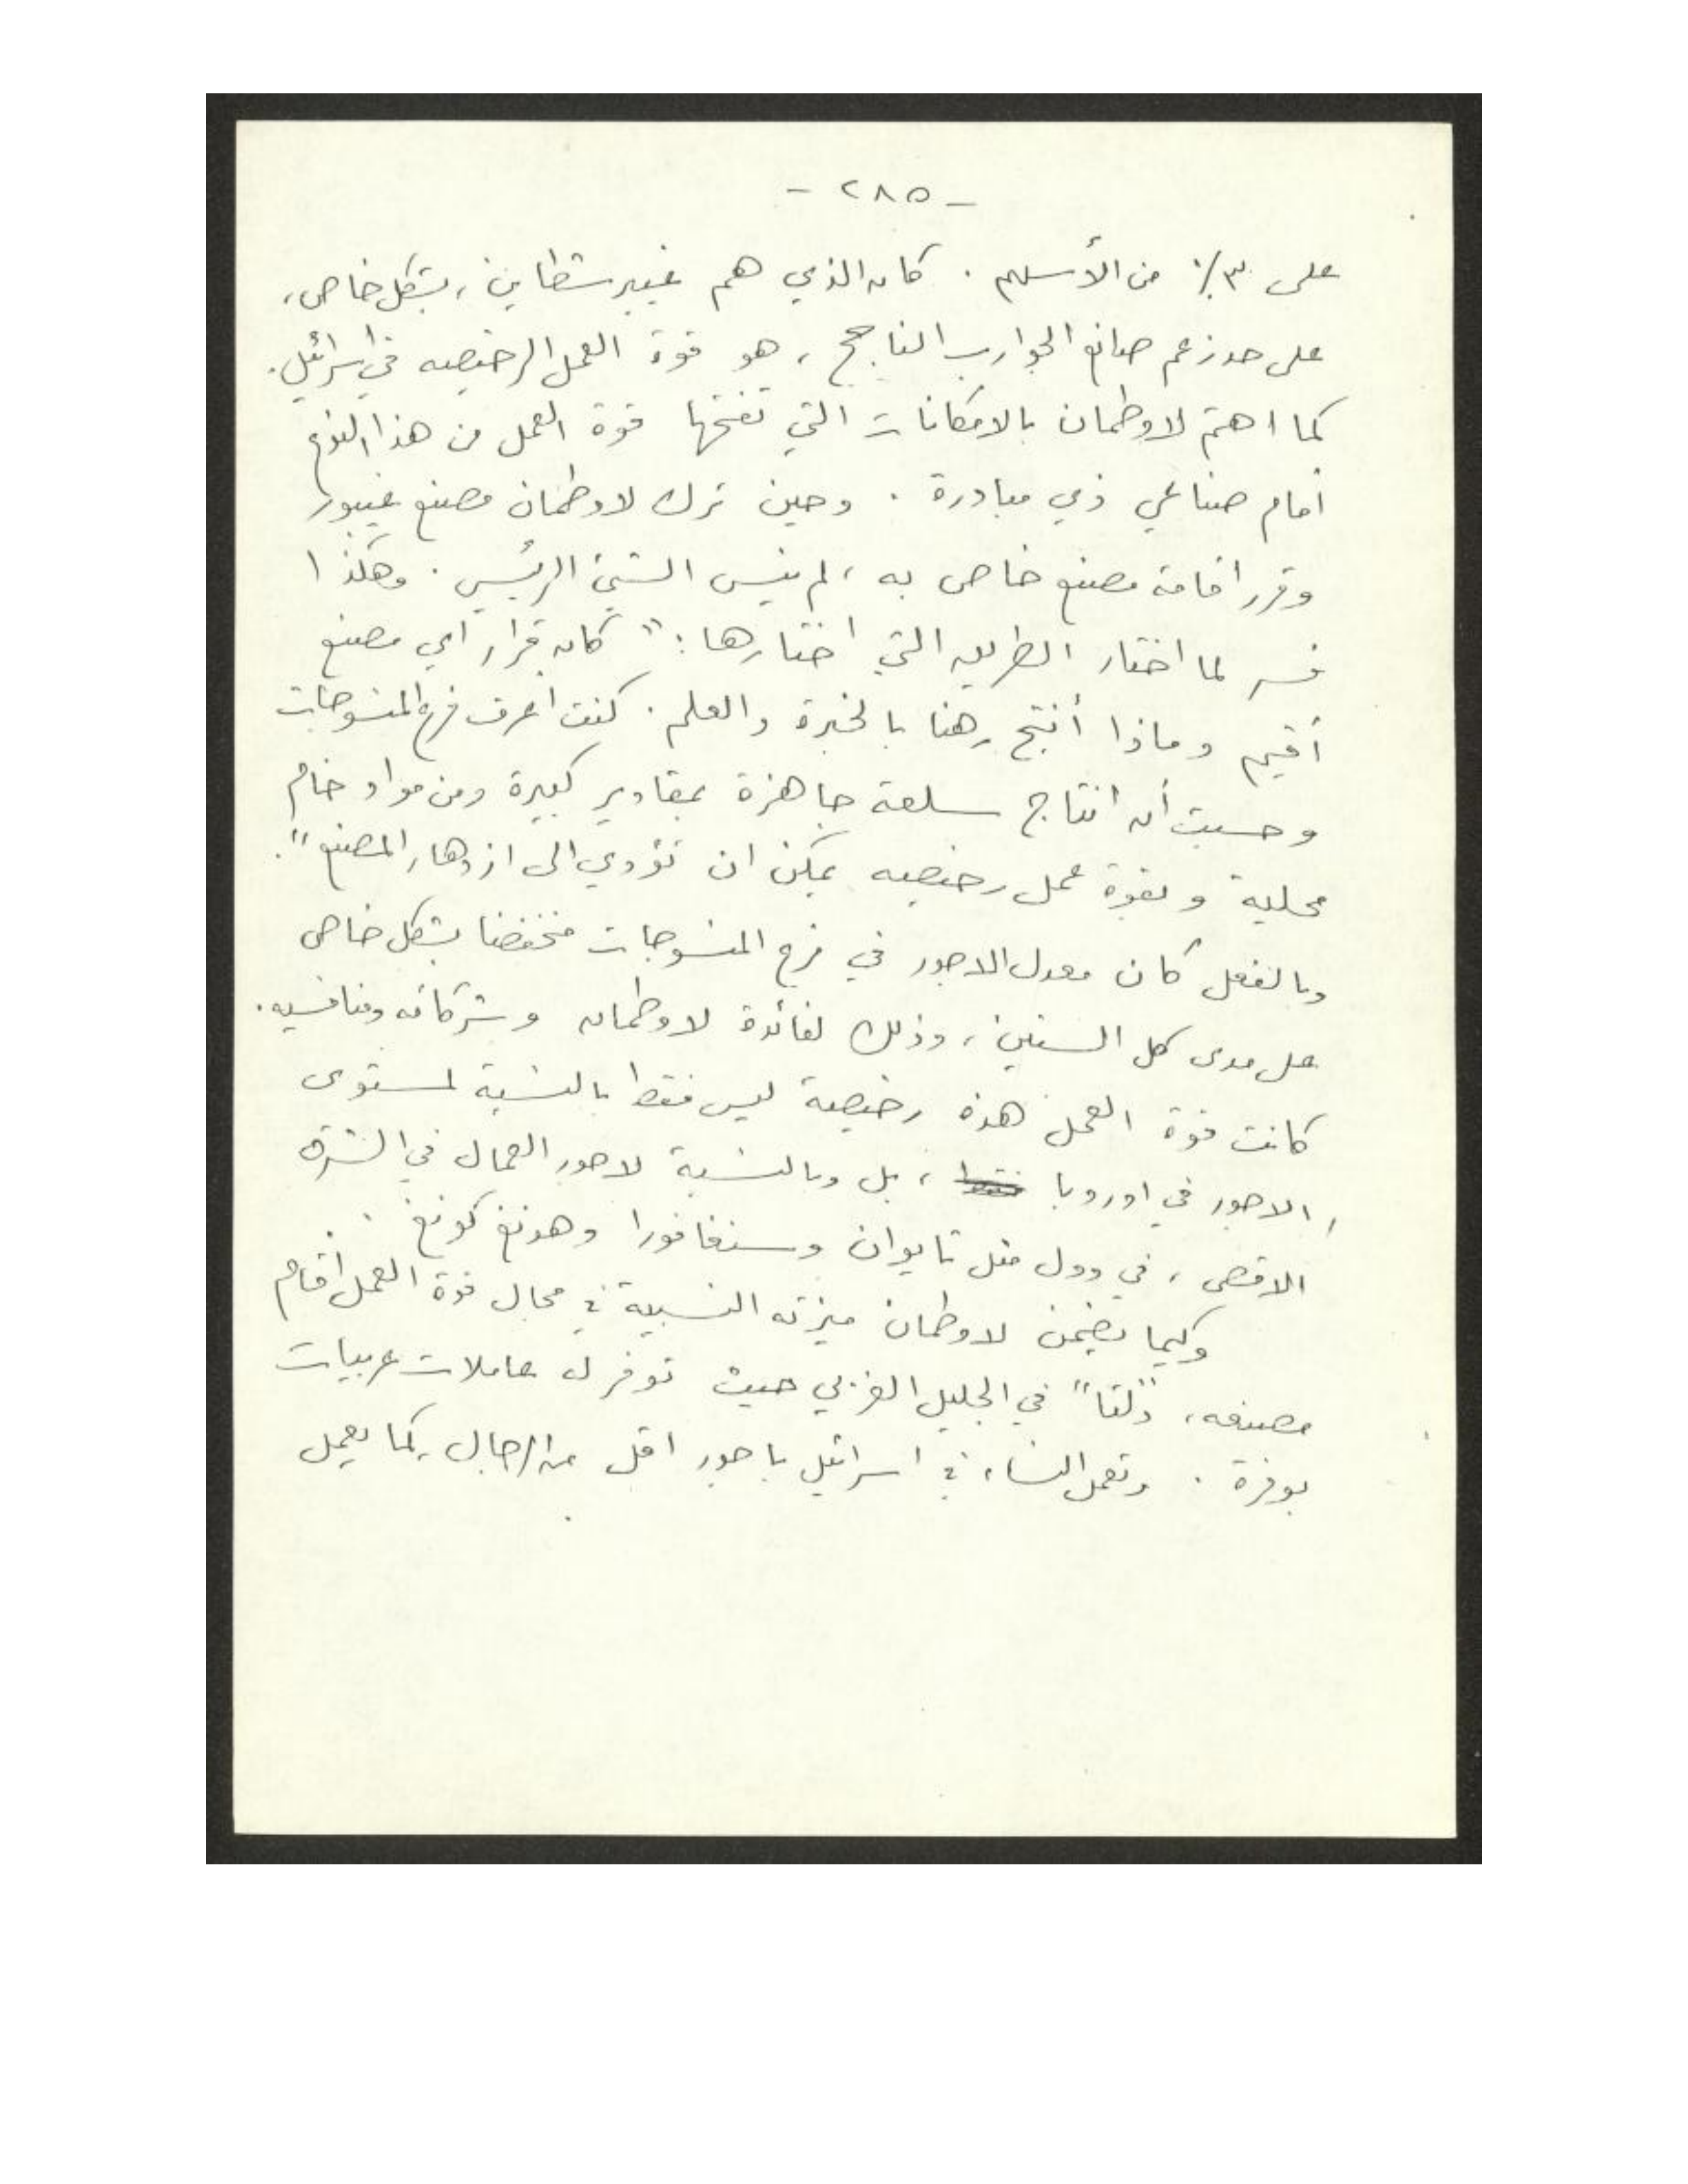 - ٢٨٥ -
على ٣٠٪ من الأسهم . كان الذي هم غيبر شطاين ، بشكل خاص ،
على حد زعم صانع الجوارب الناجح ، هو قوة العمل الرخيصه في اسرائيل .
كما اهتم لاوطمان بالامكانات التي تفتحها قوة العمل من هذا النوع
أمام صناعي ذي مبادرة . وحين ترك لاوطمان مصنع غيبور
وقرر اقامة مصنع خاص به ، لم ينس الشيئ الرئيسي . وهكذا
فسر لما اختار الطريق التي اختارها : " كان قرار أي مصنع
أقيم وماذا أنتج رهنا بالخبرة والعلم . كنت اعرف فرع المنسوجات
وحسبت أن انتاج سلعة جاهزة بمقادير كبيرة ومن مواد خام
محلية وبقوة عمل رخيصه يمكن ان تؤدي الى ازدهار المصنع " .
وبالفعل كان معدل الاجور في فرع المنسوجات منخفضا بشكل خاص
على مدى كل السنين ، وذلك لفائدة لاوطمان وشركائه ومنافسيه .
كانت قوة العمل هذه رخيصة ليس فقط بالنسبة لمستوى
الاجور في اوروبا ، بل وبالنسبة لاجور العمال في الشرق
الاقصى ، في دول مثل تايوان وسنغافورا وهونغ كونغ .
وكيما يضمن لاوطمان ميزته النسبية في مجال قوة العمل أقام
مصنعه ، "دلتا" في الجليل الغربي حيث توفر له عاملات عربيات
بوفرة . وتعمل النساء في اسرائيل باجور اقل من الرجال كما يعمل